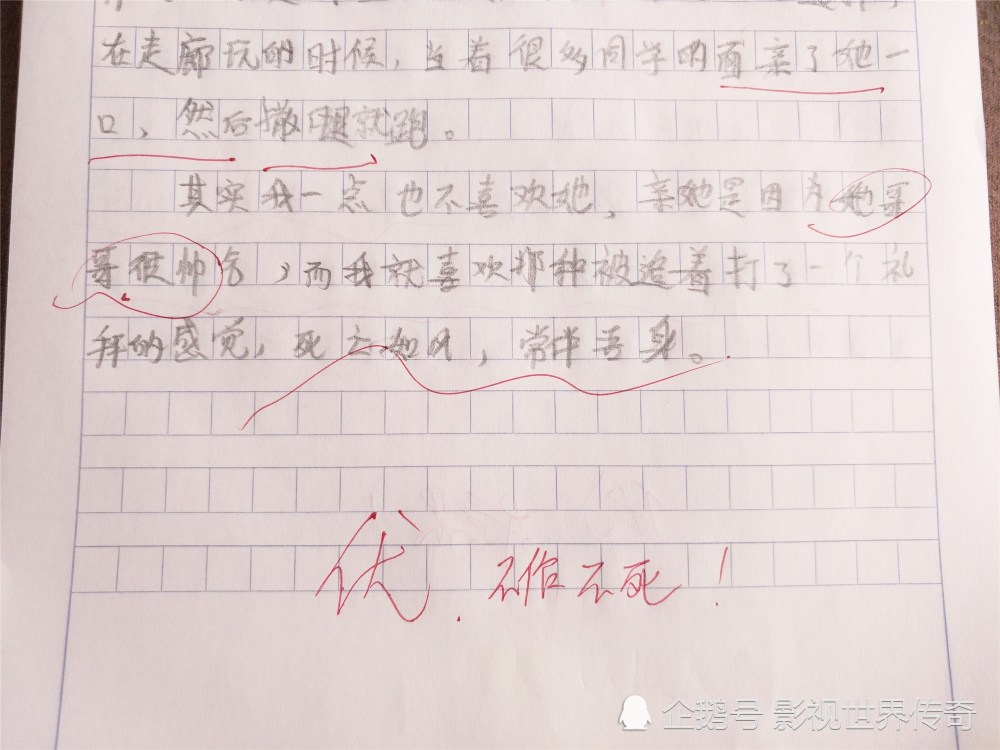 在走廊玩的时候，当着很多同学的面亲了她一
口，然后撒腿就跑。
其实我一点也不喜欢她，亲她是因为她哥
哥很帅气，而我就喜欢那种被追着打了一个礼
拜的感觉，死亡如风，常伴吾身。
优．不作不死！
企鹅号 影视世界传奇